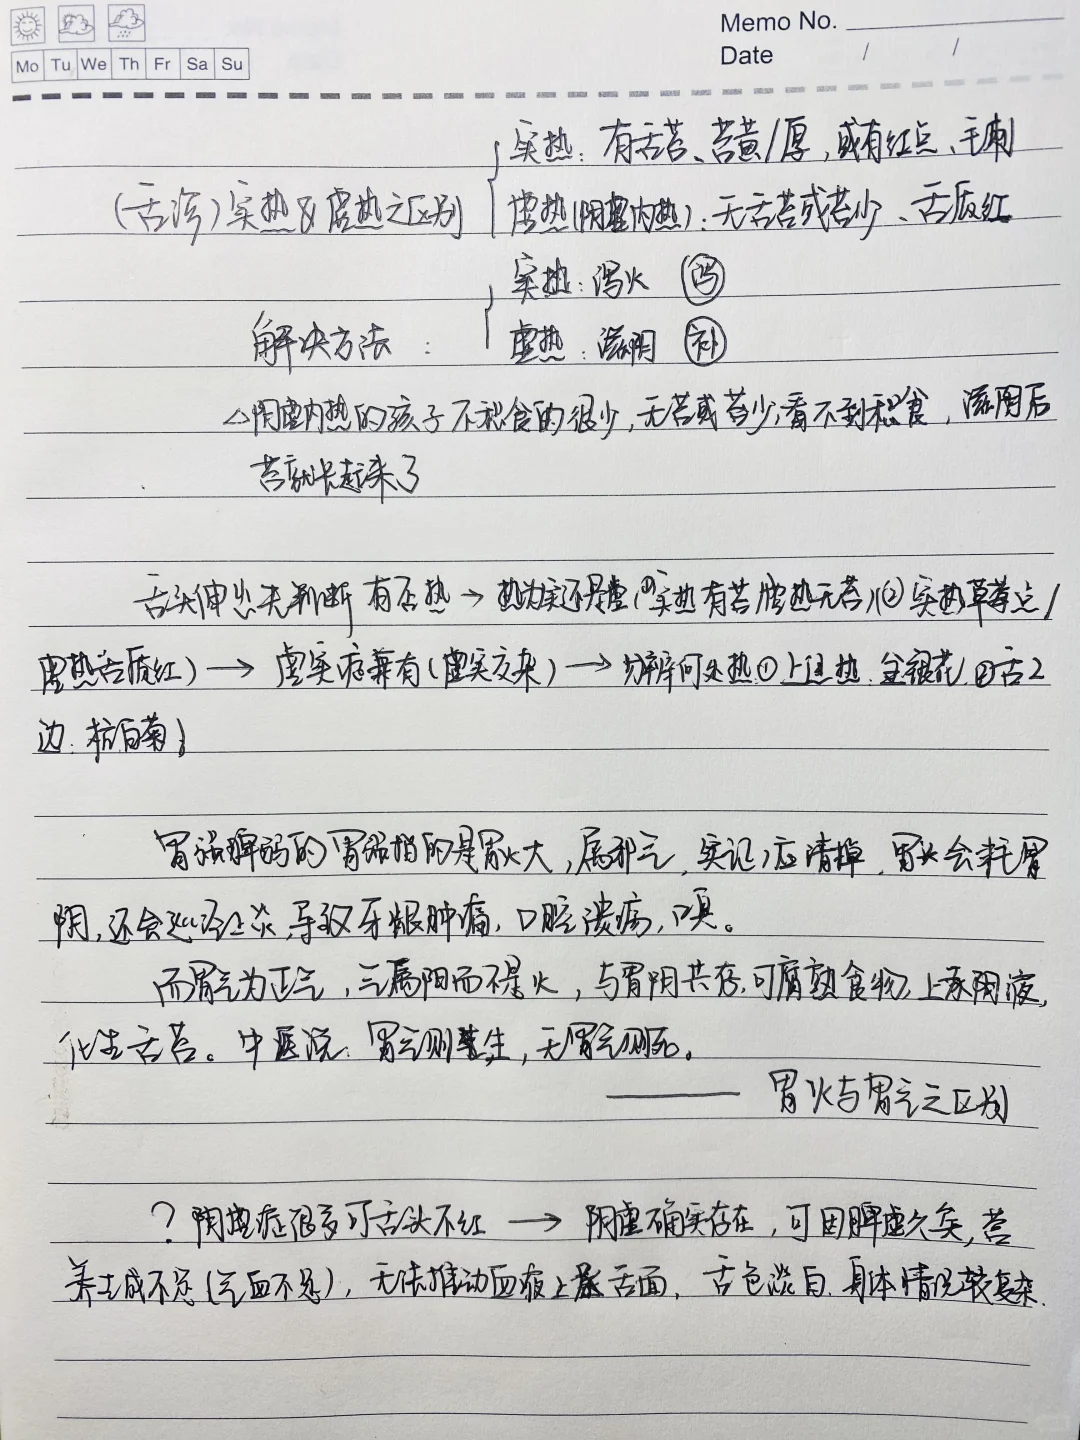 Memo No.
Date / /
Mo Tu We Th Fr Sa Su
实热：有舌苔、苔黄/厚，或有红点、毛刺
(舌诊)实热&虚热之区别
虚热(阴虚内热)：无舌苔或苔少、舌质红
实热：泻火 泻
解决方法：
虚热：滋阴 补
△阴虚内热的孩子不积食的很少，无苔或苔少，看不到积食，滋阴后
苔就长起来了
舌头伸出来判断有否热→热为实还是虚(①实热有苔虚热无苔)(②实热草莓点/
虚热舌质红)→虚实病兼有(虚实交杂)→分辨何处热①上焦热：金银花 ②舌2
边：杭白菊；
胃强脾弱的胃强指的是胃火大，属邪气，实证，应清掉，胃火会耗胃
阴，还会巡经上炎，导致牙龈肿痛，口腔溃疡，口臭。
而胃气为正气，气属阳而不是火，与胃阴共存，可腐熟食物，上承阴液，
化生舌苔。中医说：胃气则生，无胃气则死。
——胃火与胃气之区别
？阴虚症很多可舌头不红→阴虚确实存在，可因脾虚久矣，营
养生成不足(气血不足)，无法推动血液上承舌面，舌色淡白，身体情况较复杂.